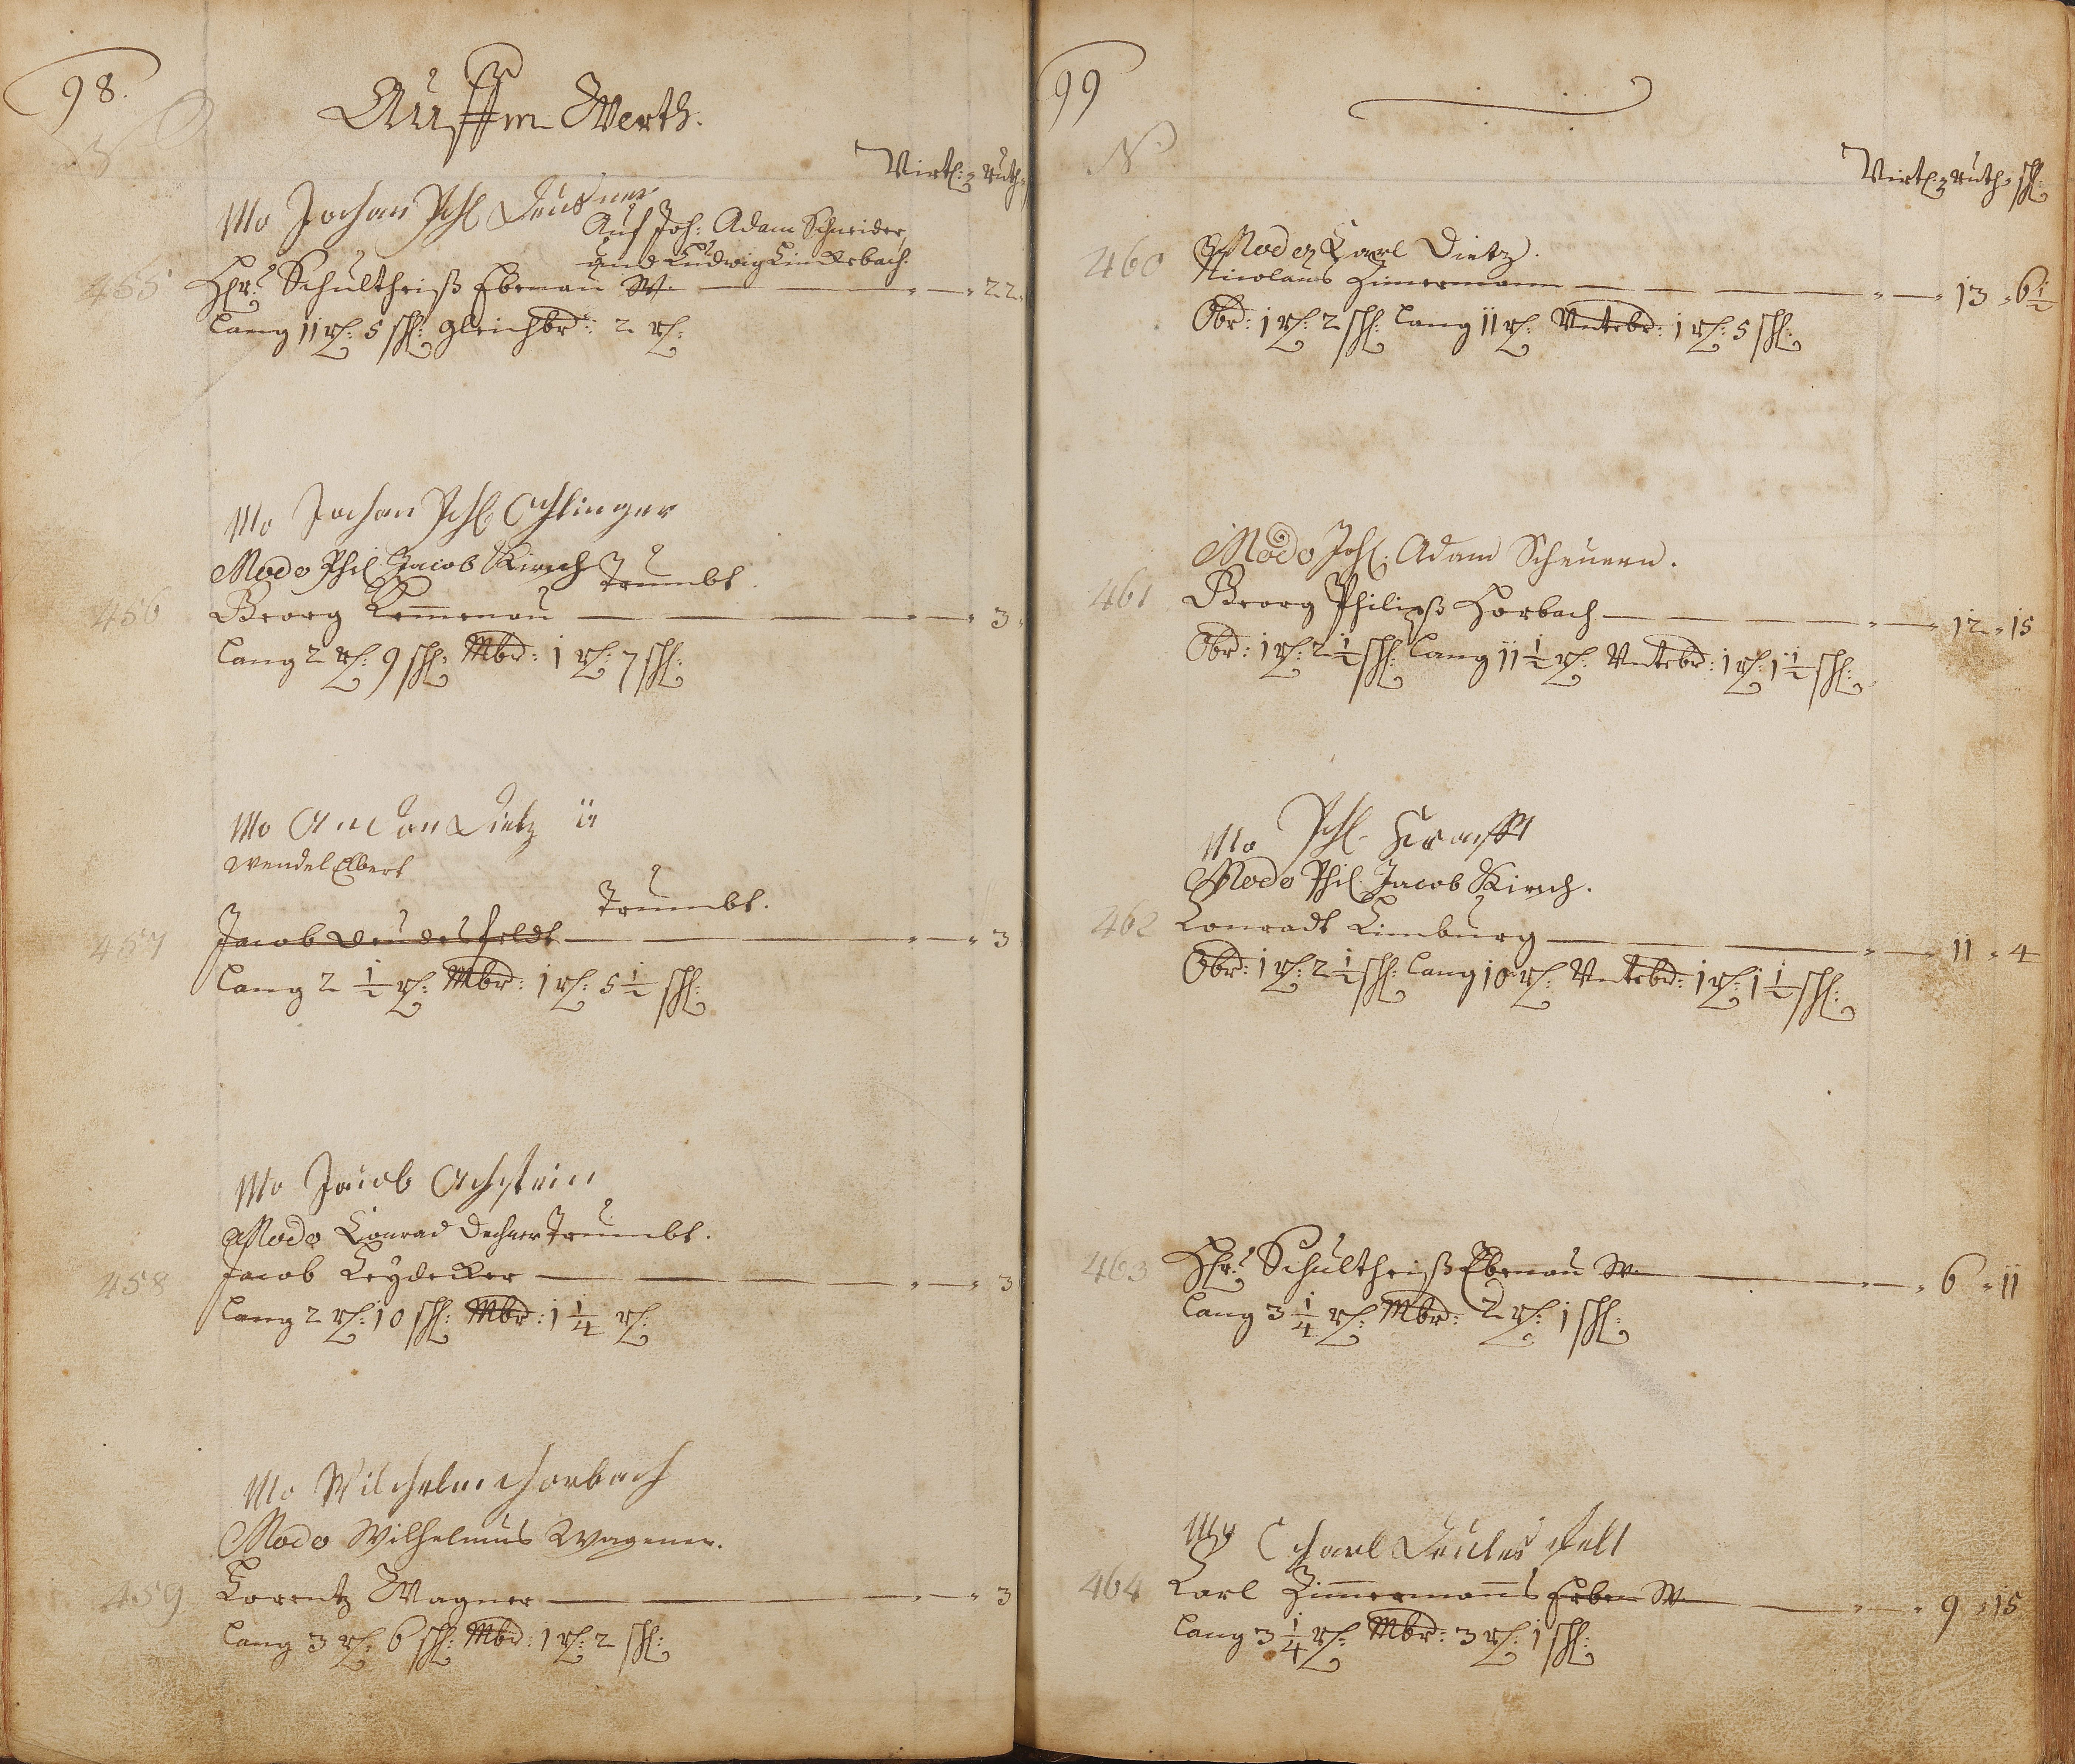 98.
Auffm Werth.
Virtl: Ruth:
Mo Johan Phl Deusner
Auf Joh: Adam Schneider,
und Ludwig Linckebach.
455 Hr: Schultheiß Ebenau W. 22
lang 11 r: 5 sch: gleichbr: 2 r:
Mo Johan Phl Ohlinger
Modo Phil. Jacob Kirsch Trumbt.
456 Georg Kem̅enau 3
lang 2 r: 9 sch: Mbr: 1 r: 7 sch:
Mo Anton Dietz
Wendel Elbert
Trumbt.
457 Jacob Deudesfeldt 3
lang 2 1/2 r: Mbr: 1 r: 5 1/2 sch:
Mo Jacob Achstein
Modo Conrad Dechner Trumbt.
458 Jacob Leydecker 3
lang 2 r: 10 sch: Mbr: 1 1/4 r:
Mo Wilhelm Horbach
Modo Wilhelmus Wagener.
459 Lorentz Wagner 3
lang 3 r: 6 sch: Mbr: 1 r: 2 sch:
99
N.
Virtl: Ruth: sch:
Modo Carl Dietz.
460 Nicolaus Zimermann 13 6 1/2
Obr: 1 r: 2 sch: lang 11 r: Unterbr: 1 r: 5 sch:
Modo Joh: Adam Scheuern.
461 Georg Philipß Horbach 12 15
Obr: 1 r: 2 1/2 sch: lang 11 1/2 r: Unterbr: 1 r: 1 1/2 sch:
Mo Phl. Krafft
Modo Phil. Jacob Kirsch.
462 Conradt Limburg 11 4
Obr: 1 r: 2 1/2 sch: lang 10 r: Unterbr: 1 r: 1 1/2 sch:
463 Hr: Schultheiß Ebenau W. 6 11
lang 3 1/4 r: Mbr: 2 r: 1 sch:
Mo Charl Deudesfelt
464 Carl Zim̅ermann̅s Erben W. 9 15
lang 3 1/4 r: Mbr: 3 r: 1 sch: